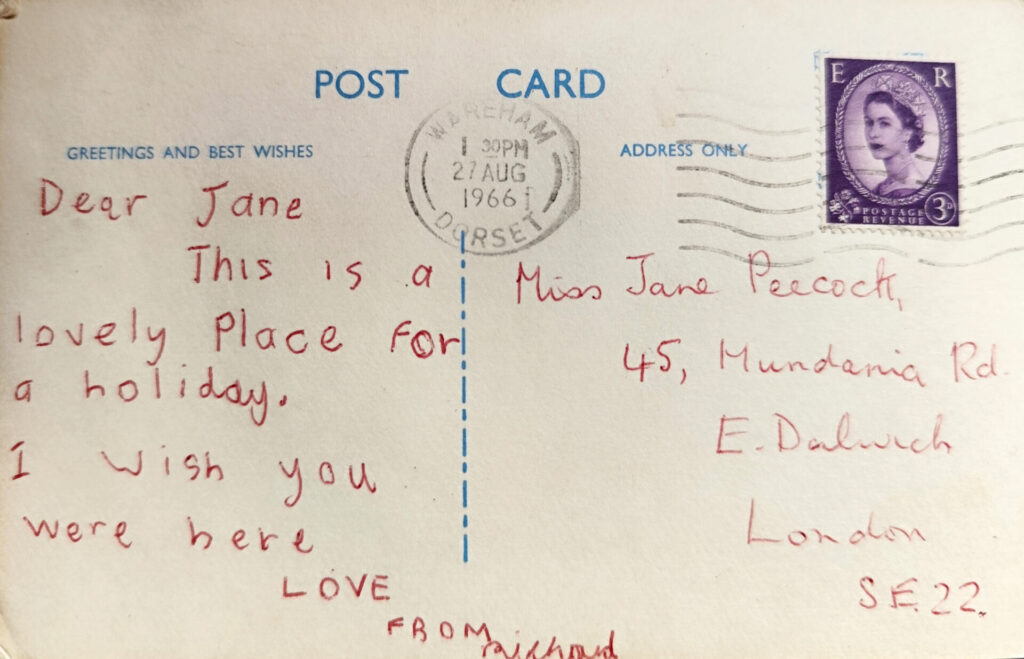 POST CARD
GREETINGS AND BEST WISHES
ADDRESS ONLY
WAREHAM
1 30PM
27 AUG
1966
DORSET
E R
POSTAGE
REVENUE
3D
Dear Jane
This is a
lovely Place For
a holiday.
I wish you
were here
LOVE
FROM Richard
Miss Jane Peecock,
45, Mundania Rd.
E. Dulwich
London
S.E.22.